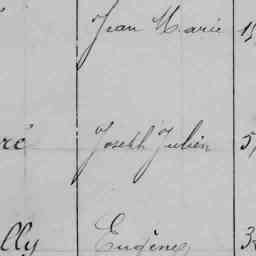 Jean Marie 15
ré Joseph Julien 5
lly Eugène 3